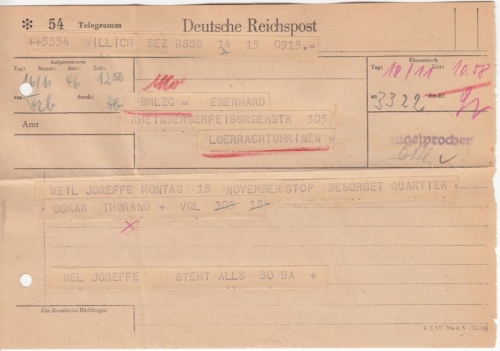 * 54 Telegramm Deutsche Reichspost
++5554 WILLICH BEZ DSSD 14 15 0915.=
Aufgenommen
Tag: Monat: Jahr: Zeit:
14/11 46
von: durch:
Übermittelt
Tag: Zeit:
18/11 10.58
an: durch:
3322
BMLZG = EBERHARD
RHEINBERGERFEIBURGERSTR 305
Amt
LOERRACHTUMRINEN =
WEIL JOREFFE MONTAG 18 NOVEMBER STOP BESORGET QUARTIER =
OSKAR THORAND + VGL 305 18-
WEL JOREFFE STEHT ALLS SO DA +
Für dienstliche Rückfragen